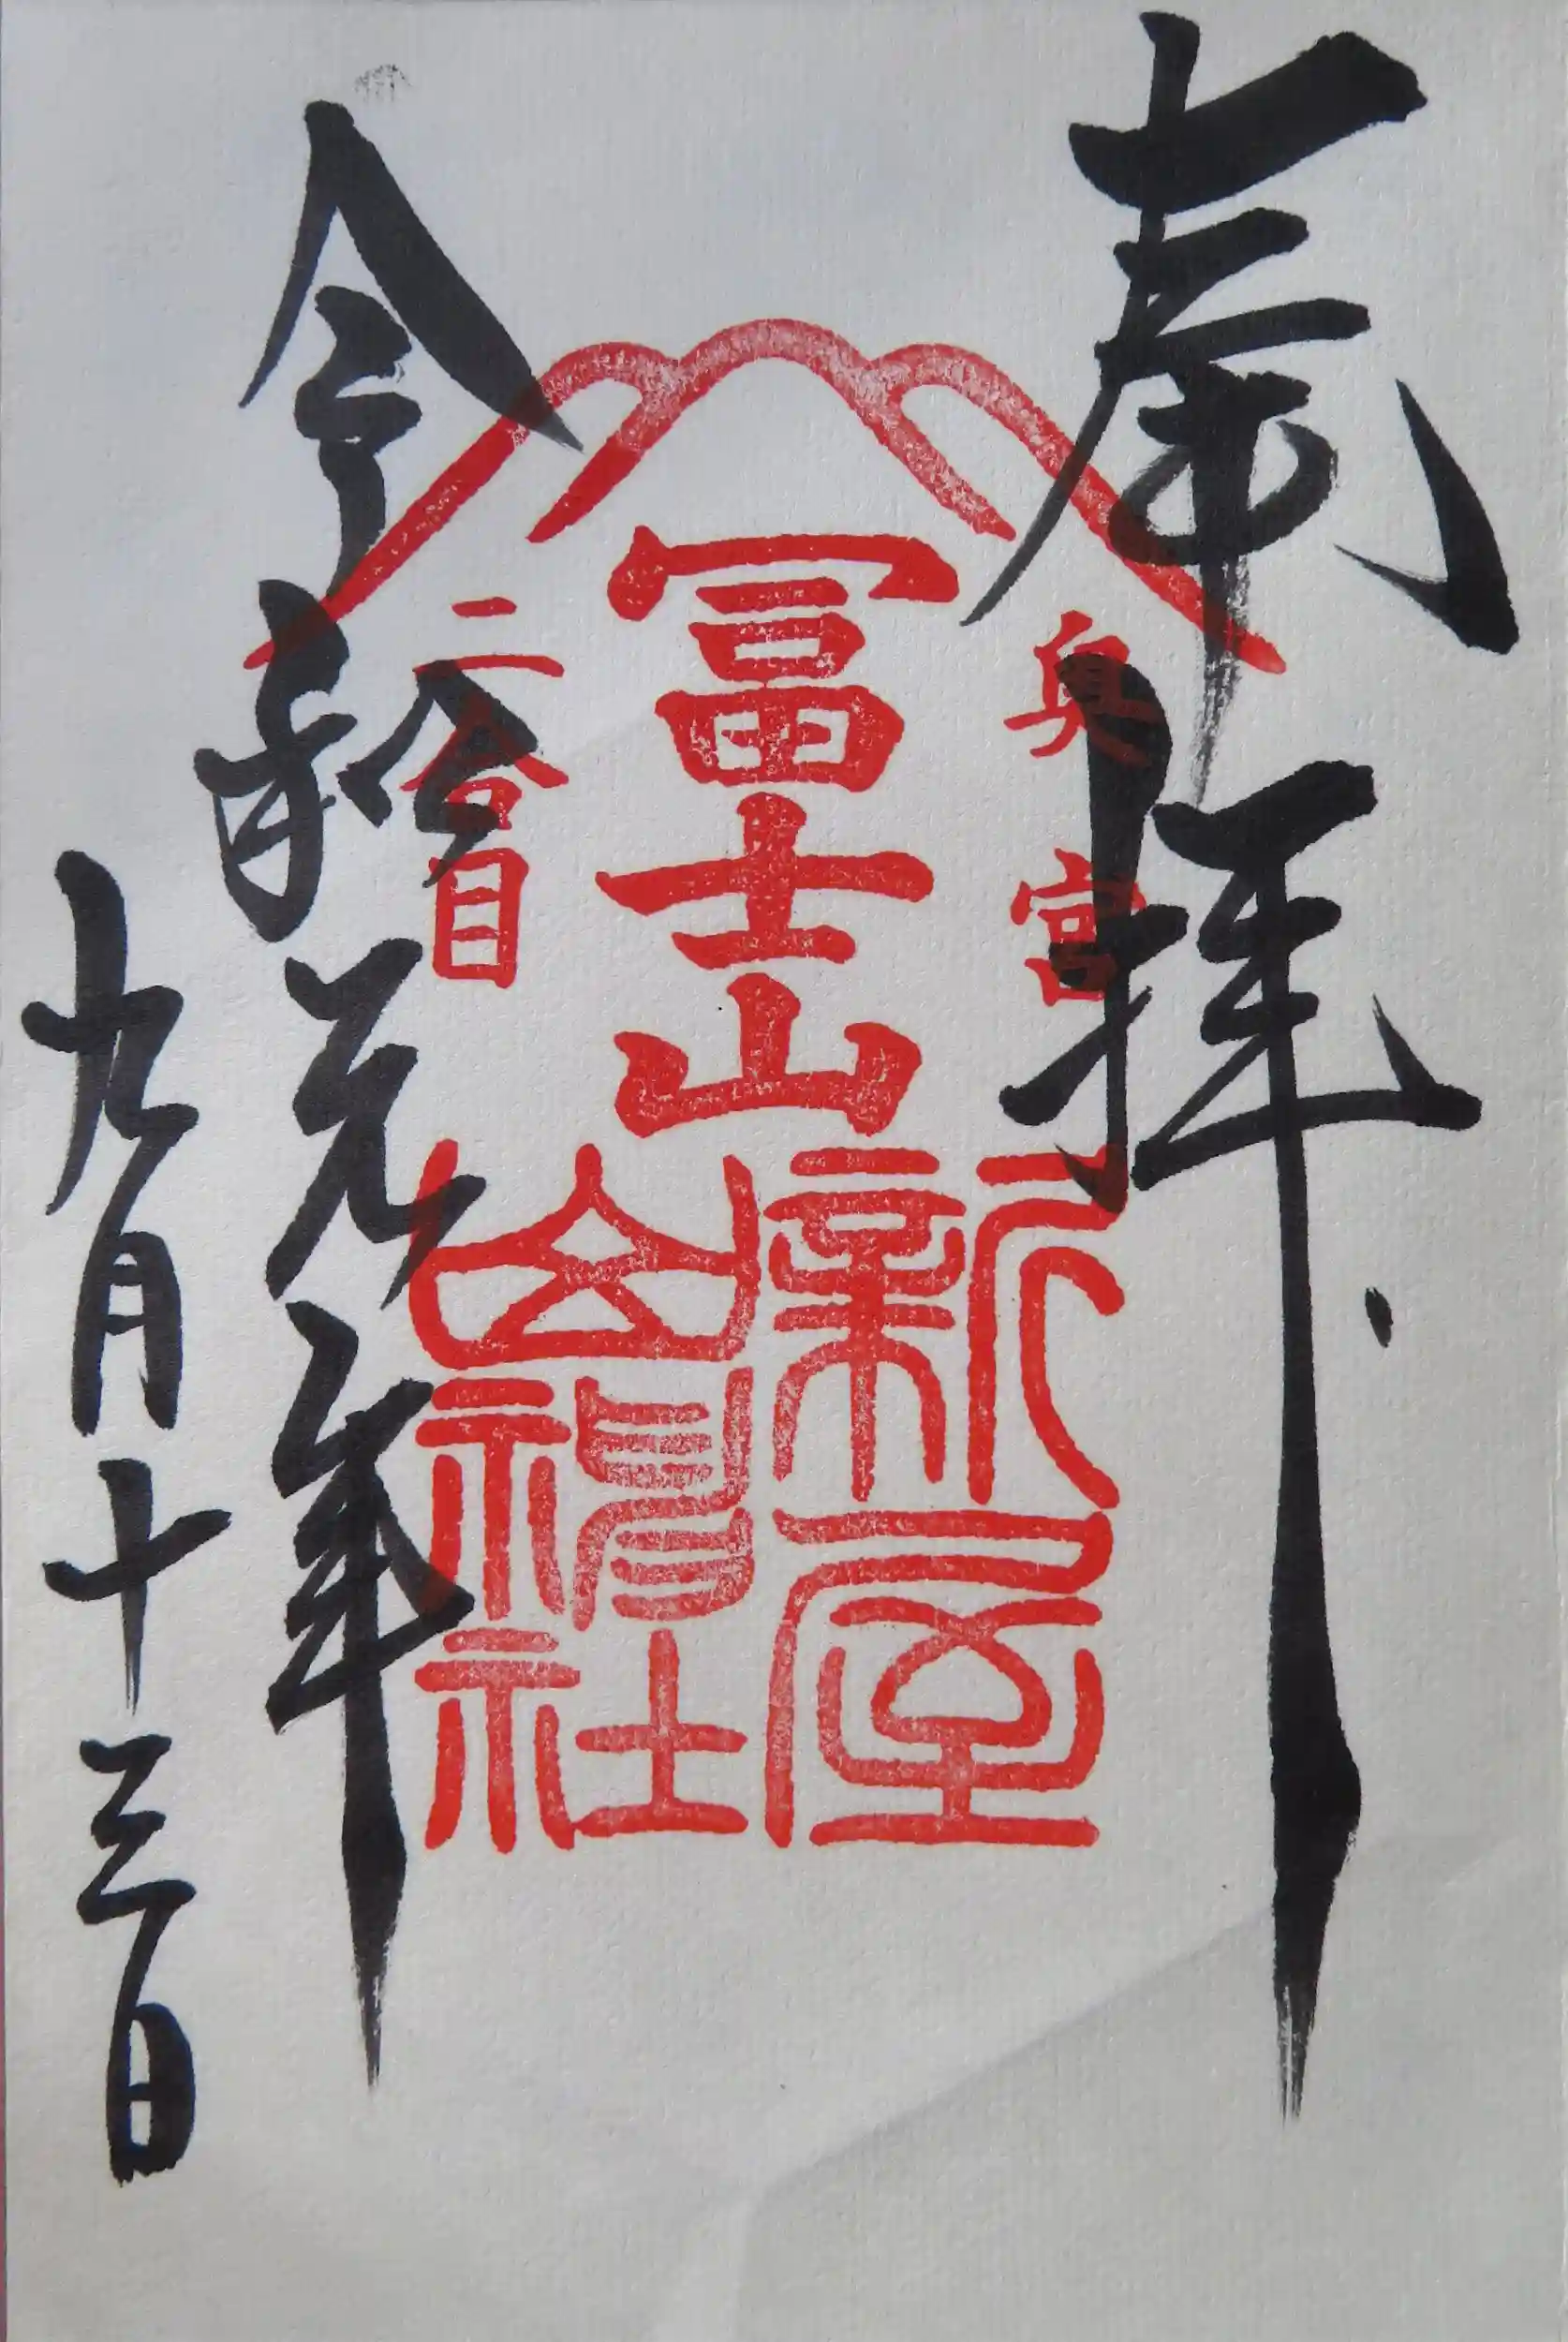 奉拝
奥宮
冨士山
新屋
山神社
二合目
令和元年
九月十三日